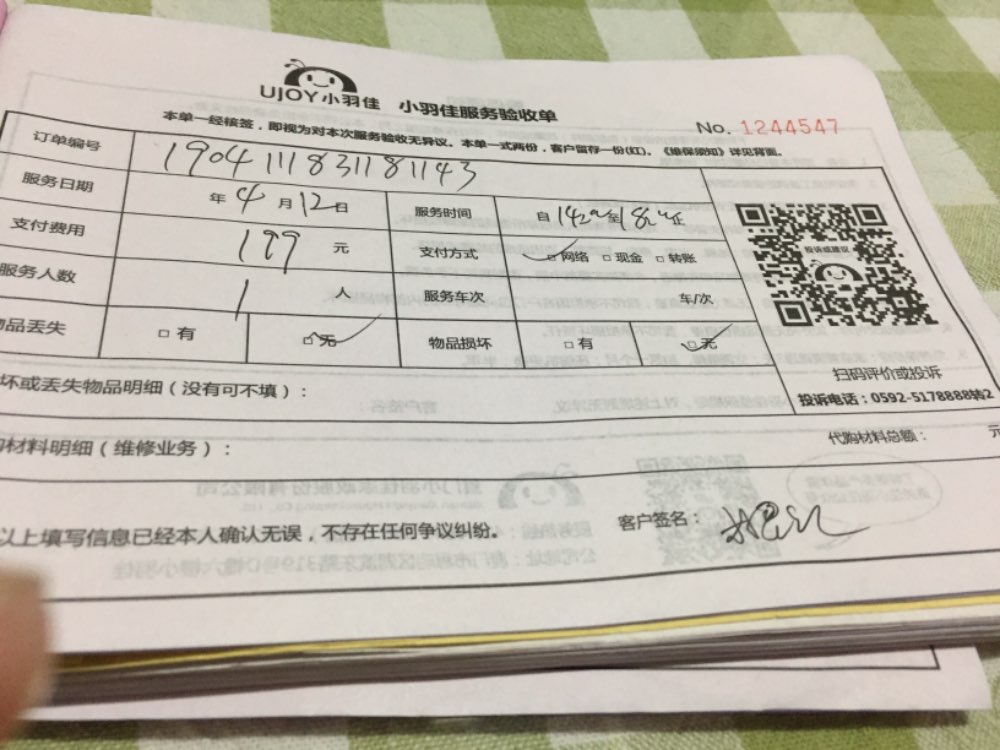 UJOY小羽佳 小羽佳服务验收单
No. 1244547
本单一经核签，即视为对本次服务验收无异议。本单一式两份，客户留存一份(红)。《维保须知》详见背面。
订单编号 190411183118 1143
服务日期 年 4 月 12 日 服务时间 自 至 止
支付费用 199 元 支付方式 □网络 □现金 □转账
服务人数 1 人 服务车次 车/次
物品丢失 □有 □无 物品损坏 □有 □无
投诉或建议
扫码评价或投诉
投诉电话：0592-5178888转2
坏或丢失物品明细（没有可不填）：
购材料明细（维修业务）： 代购材料总额： 元
以上填写信息已经本人确认无误，不存在任何争议纠纷。 客户签名：